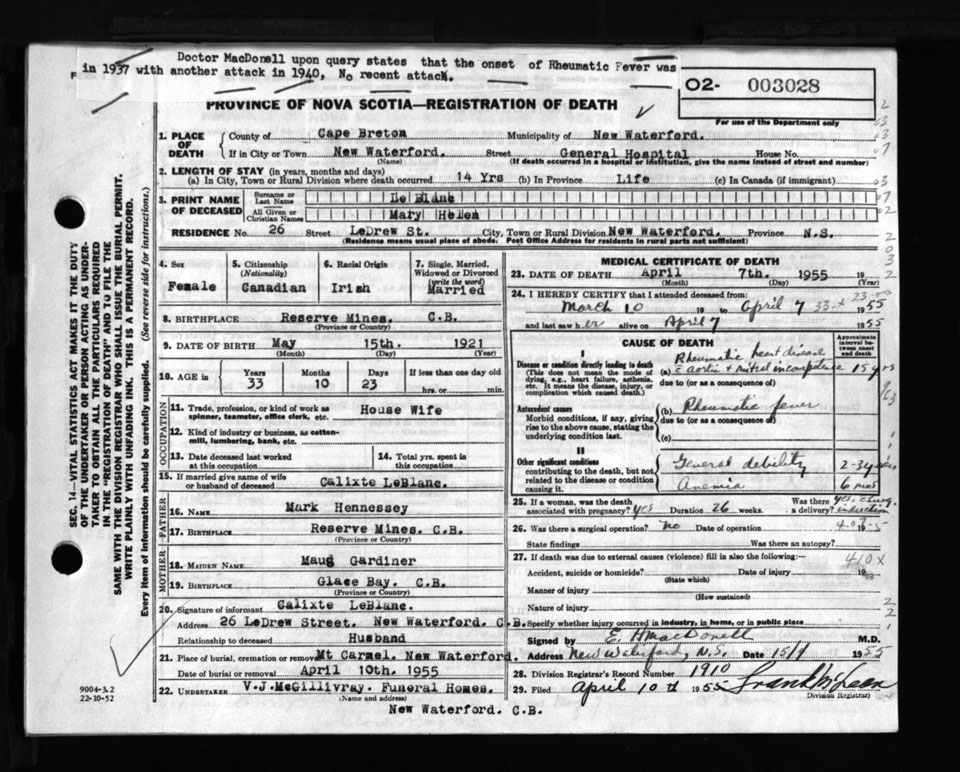 Doctor MacDonell upon query states that the onset of Rheumatic Fever was
in 1937 with another attack in 1940, No recent attack.
F
O2- 003028
For use of the Department only
PROVINCE OF NOVA SCOTIA—REGISTRATION OF DEATH
1. PLACE OF DEATH
County of Cape Breton Municipality of New Waterford.
If in City or Town New Waterford. Street General Hospital House No.
(Name) (If death occurred in a hospital or institution, give the name instead of street and number)
2. LENGTH OF STAY (in years, months and days)
(a) In City, Town or Rural Division where death occurred 14 Yrs (b) In Province Life (c) In Canada (if immigrant)
3. PRINT NAME OF DECEASED
Surname or Last Name Le Blanc
All Given or Christian Names Mary Helen
RESIDENCE No. 26 Street LeDrew St. City, Town or Rural Division New Waterford. Province N.S.
(Residence means usual place of abode. Post Office Address for residents in rural parts not sufficient)
4. Sex
Female
5. Citizenship
(Nationality)
Canadian
6. Racial Origin
Irish
7. Single, Married,
Widowed or Divorced
(write the word)
Married
8. BIRTHPLACE Reserve Mines. C.B.
(Province or Country)
9. DATE OF BIRTH May 15th. 1921
(Month) (Day) (Year)
10. AGE in
Years Months Days If less than one day old
33 10 23 hrs. or min.
OCCUPATION
11. Trade, profession, or kind of work as House Wife
spinner, teamster, office clerk, etc.
12. Kind of industry or business, as cotton-
mill, lumbering, bank, etc.
13. Date deceased last worked
at this occupation
14. Total yrs. spent in
this occupation
15. If married give name of wife
or husband of deceased Calixte LeBlanc.
FATHER
16. NAME Mark Hennessey
17. BIRTHPLACE Reserve Mines. C.B.
(Province or Country)
MOTHER
18. MAIDEN NAME Maug Gardiner
19. BIRTHPLACE Glace Bay. C.B.
(Province or Country)
20. Signature of informant Calixte LeBlanc.
Address 26 LeDrew Street. New Waterford. C.B.
Relationship to deceased Husband
21. Place of burial, cremation or removal Mt Carmel. New Waterford.
Date of burial or removal April 10th. 1955
22. UNDERTAKER V.J.McGillivray. Funeral Homes.
(Name and address)
New Waterford. C.B.
MEDICAL CERTIFICATE OF DEATH
23. DATE OF DEATH April 7th. 1955 19
(Month) (Day) (Year)
24. I HEREBY CERTIFY that I attended deceased from:
March 10 19 to April 7 1955
and last saw her alive on April 7 1955
CAUSE OF DEATH
Approximate interval between onset and death
I
Disease or condition directly leading to death
(This does not mean the mode of
dying, e.g., heart failure, asthenia,
etc. It means the disease, injury, or
complication which caused death.)
(a) Rheumatic heart disease
c̄ aortic + mitral incompetence 15 yrs
due to (or as a consequence of)
Antecedent causes
Morbid conditions, if any, giving
rise to the above cause, stating the
underlying condition last.
(b) Rheumatic fever
due to (or as a consequence of)
(c)
II
Other significant conditions
contributing to the death, but not
related to the disease or condition
causing it.
General debility 2-3 years
Anemia 6 mos
25. If a woman, was the death Was there yes,
associated with pregnancy? yes Duration 26 weeks. a delivery? induction
26. Was there a surgical operation? no Date of operation 19
State findings Was there an autopsy?
27. If death was due to external causes (violence) fill in also the following:— 410x
Accident, suicide or homicide? Date of injury 19
(State which)
Manner of injury
(How sustained)
Nature of injury
Specify whether injury occurred in industry, in home, or in public place
Signed by E. H MacDonell M.D.
Address New Waterford, N.S. Date 15/4 1955
28. Division Registrar's Record Number 1910
29. Filed April 10th 1955 Frank McLean
Division Registrar)
SEC. 14—VITAL STATISTICS ACT MAKES IT THE DUTY
OF THE UNDERTAKER OR PERSON ACTING AS UNDER-
TAKER TO OBTAIN ALL THE PARTICULARS REQUIRED
IN THE "REGISTRATION OF DEATH" AND TO FILE THE
SAME WITH THE DIVISION REGISTRAR WHO SHALL ISSUE THE BURIAL PERMIT.
WRITE PLAINLY WITH UNFADING INK. THIS IS A PERMANENT RECORD.
Every item of information should be carefully supplied. (See reverse side for instructions.)
9004-3.2
22-10-52